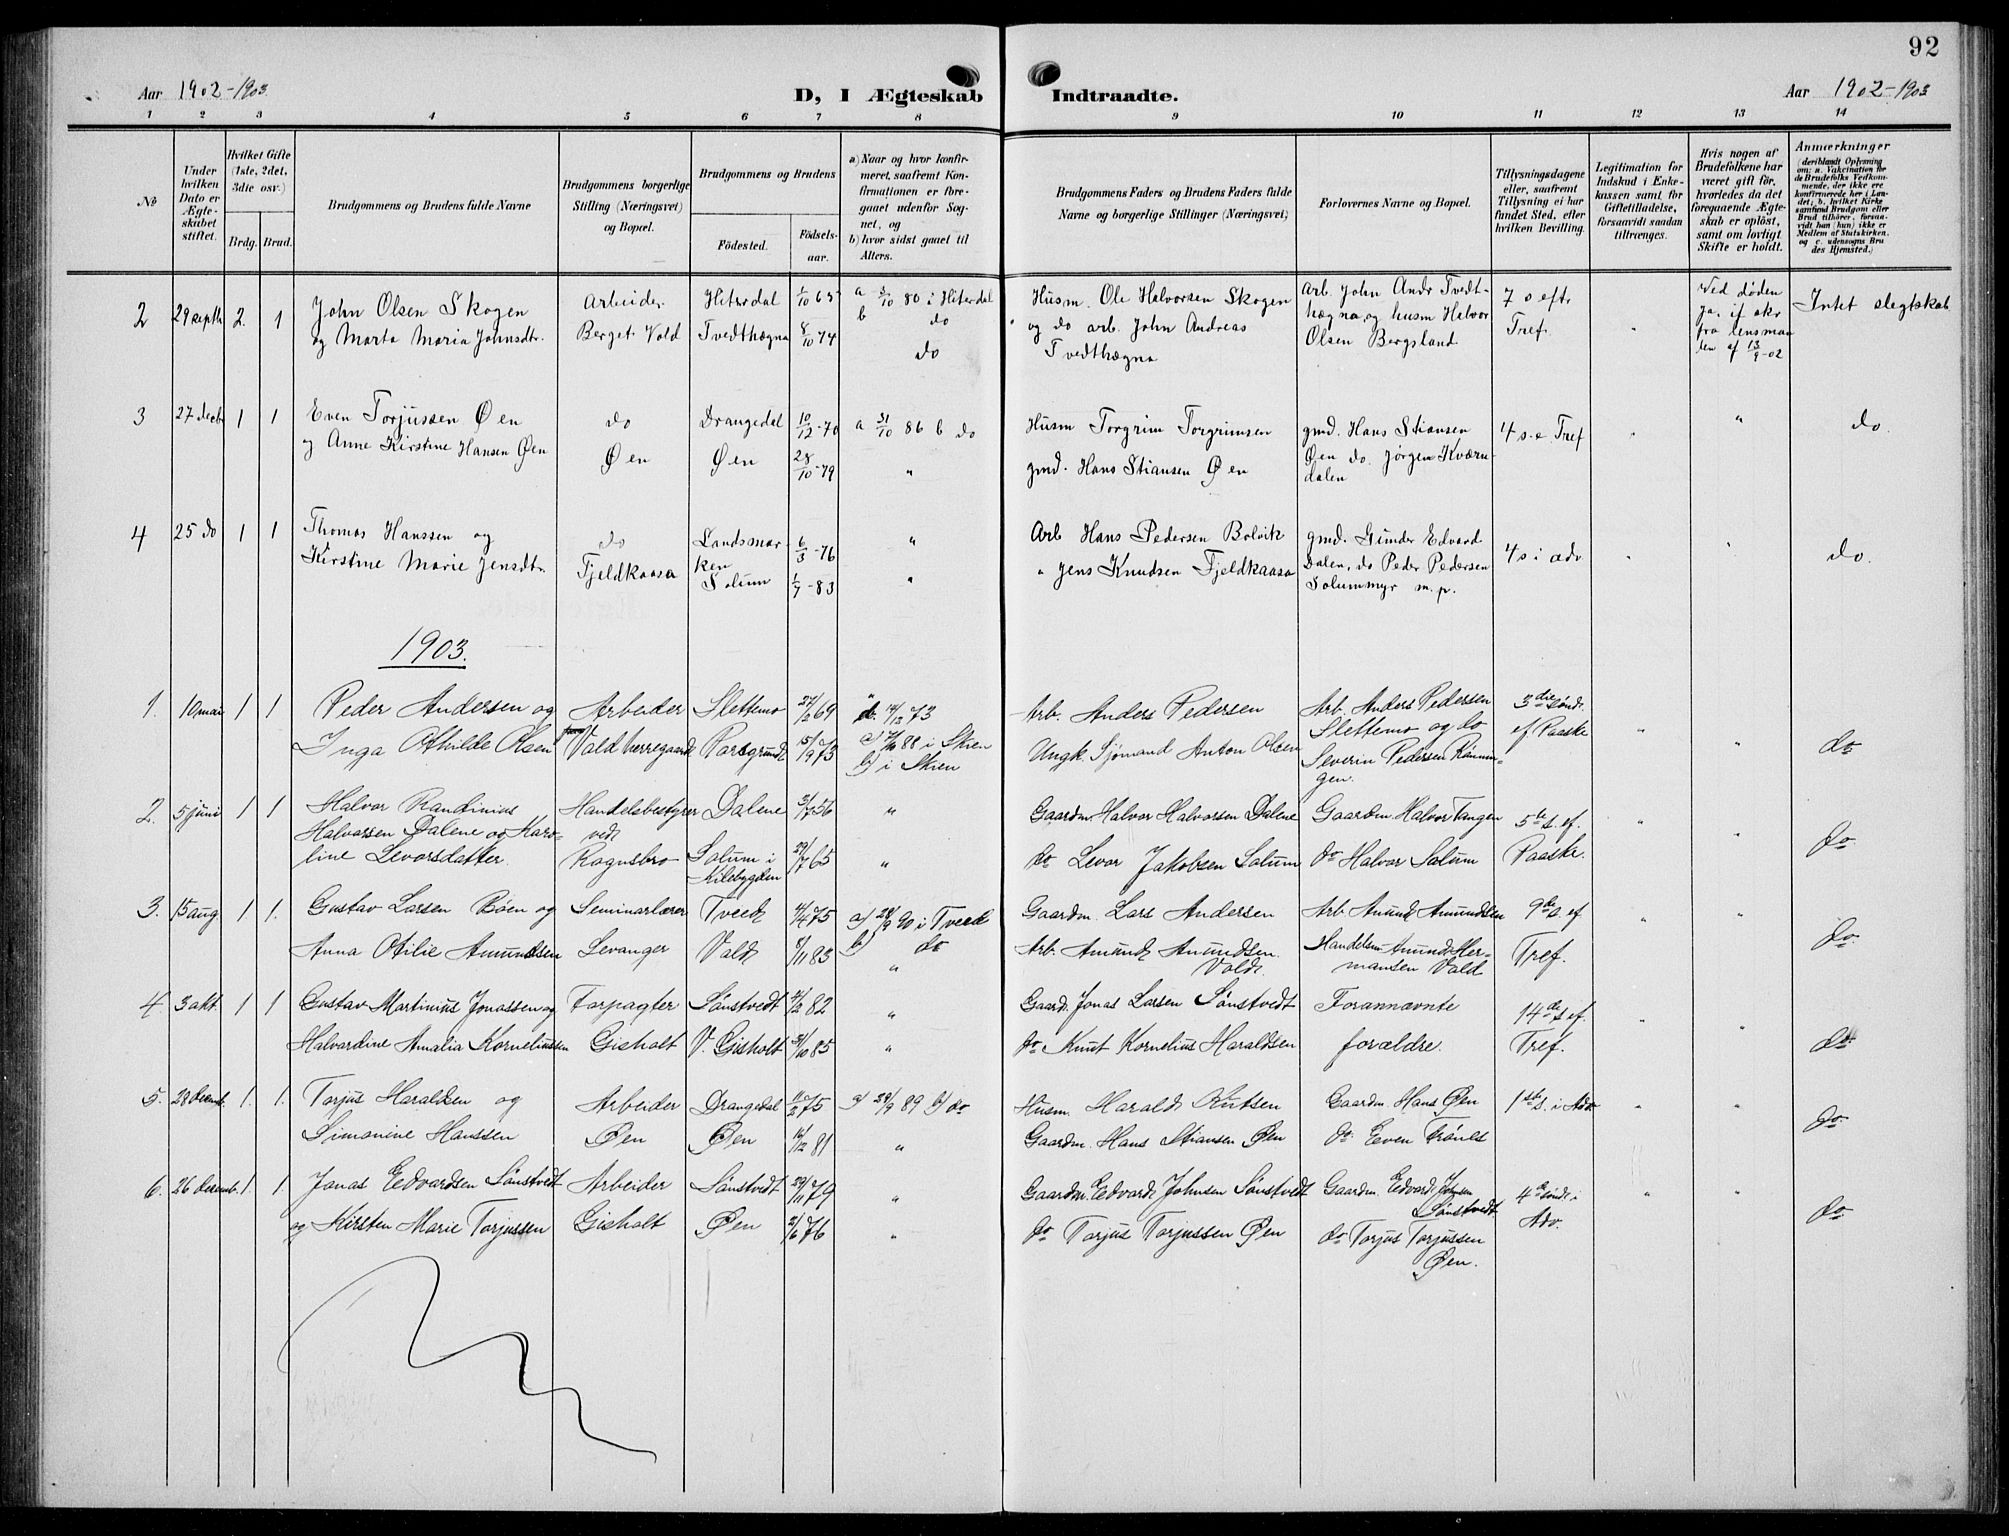 92
Aar 1902-1903.
D, I Ægteskab Indtraadte.
Aar 1902-1903
1 2 3 4 5 6 7 8 9 10 11 12 13 14
No
Under hvilken Dato er Ægteskabet stiftet.
Hvilket Gifte (1ste, 2det, 3die osv.)
Brdg. Brud.
Brudgommens og Brudens fulde Navne
Brudgommens borgerlige Stilling (Næringsvei) og Bopæl.
Brudgommens og Brudens
Fødested. Fødselsaar.
a) Naar og hvor konfirmeret, saafremt Konfirmationen er foregaaet udenfor Sognet, og
b) hvor sidst gaaet til Alters.
Brudgommens Faders og Brudens Faders fulde Navne og borgerlige Stillinger (Næringsvei)
Forlovernes Navne og Bopæl.
Tillysningsdagene eller, saafremt Tillysning ei har fundet Sted, efter hvilken Bevilling.
Legitimation for Indskud i Enkekassen samt for Giftetilladelse, forsaavidt saadan tiltrænges.
Hvis nogen af Brudefolkene har været gift før, hvorledes da det foregaaende Ægteskab er opløst, samt om lovligt Skifte er holdt.
Anmærkninger
(deriblandt Oplysning om: a. Vaccination for de Brudefolks Vedkommende, der ikke ere konfirmerede her i Landet; b. hvilket Kirkesamfund Brudgom eller Brud tilhører, forsaavidt han (hun) ikke er Medlem af Statskirken, og c. udensogns Brudes Hjemsted.)
2 29 septb 2. 1 John Olsen Skogen Arbeider Hiterdal 1/10 65 a 3/10 80 i Hiterdal Husm. Ole Halvorsen Skogen Arb. John Andr Tvedt- 7 s eftr Ved døden Intet slegtskab
og Marta Maria Johnsdtr. Berget Vold Tvedthægna 8/10 74 b do og do arb. John Andreas hægna, og husm Halvor Tref. " Ja, if skr
do Tvedthægna Olsen Bergsland fra lensmanden af 13/9-02
3 27 decb 1 1 Even Torjussen Øen do Drangedal 10/12-70 a 31/10 86 b do Husm Torgrim Torgrimsen gmd. Hans Stiansen 4 s. e Tref " " do.
og Anne Kirstine Hansen Øen Øen Øen 28/10-79 " gmd. Hans Stiansen Øen Øen do. Jørgen Kværndalen
4 25 do 1 1 Thomas Hanssen og do Landsmarken 6/3-76 " Arb Hans Pedersen Bolvik gmd. Gunder Edvard 4 s i adv " " do.
Kirstine Marie Jensdtr. Fjeldkaasa Solum 1/7-83 " " Jens Knudsen Fjeldkaasa Dalen, do Peder Pedersen
Solummyr m.p.
1903.
1. 10 mai 1 1 Peder Andersen og Arbeider Slettemo 27/2 69 " Arb. Anders Pedersen Arb. Anders Pedersen 3die sönd.
Inga Othilde Olsen Vald herregaard Porsgrund 15/9 73 a) 88 i Skien Ungk. Sjømand Anton Olsen Slettemo og do ef. Paaske " " do
b) i Skien Severin Pedersen Rönningen.
2. 5 juni 1 1 Halvor Randinius Handelsbestyrer Dalene 3/7 56 " Gaardm. Halvor Halvorsen Dalene Gaardm. Halvor Tangen 5te s. ef. " " do
Halvorsen Dalene og Karo- ved
line Levorsdatter. Rognsbro Solum i Kilebygden 29/7 65 " do Levor Jakobsen Solum do Halvor Solum Paaske.
3. 15 aug 1 1. Gustav Larsen Böen og Seminarlærer Tveed 4/4 75 a) 28/9 90 i Tveed Gaardm. Lars Andersen Arb. Amund Amundsen 9de s. ef " " do.
Anna Otilie Amundsen Levanger Vald 5/11 83 b) do Arb. Amund Amundsen Vald. Handelsm. Amund Hermansen Vald Tref.
4. 3 okt. 1 1 Gustav Martinius Jonassen og Forpagter Sönstvedt 4/2 82 " Gaard. Jonas Larsen Sönstvedt Forannævnte 14de s. ef. " " do
Halvardine Amalia Korneliussen Gisholt V. Gisholt 31/10 85 " do Knut Kornelius Haraldsen forældre. Tref.
5. 28 decemb. 1. 1. Torjus Haraldsen og Arbeider Drangedal 11/2 75 a) 29/9 89 b) do Husm. Harald Knutsen Gaardm. Hans Øen 1ste s. i Adv " " do
Simonine Hanssen Øen Øen 16/12 81 " Gaardm. Hans Stiansen Øen do Even Trönes
6. 26 decemb. 1. 1. Jonas Eedvardsen Sönstvedt Arbeider Sönstvedt 29/11 79 " Gaardm. Eedvard Johnsen Sönstvedt Gaardm. Eedvard Johnsen Sönstvedt 4de sönd. i Adv. " " do
og Kirsten Marie Torjussen Gisholt Øen 2/6 76 " do Torjus Torjussen Øen do Torjus Torjussen Øen.